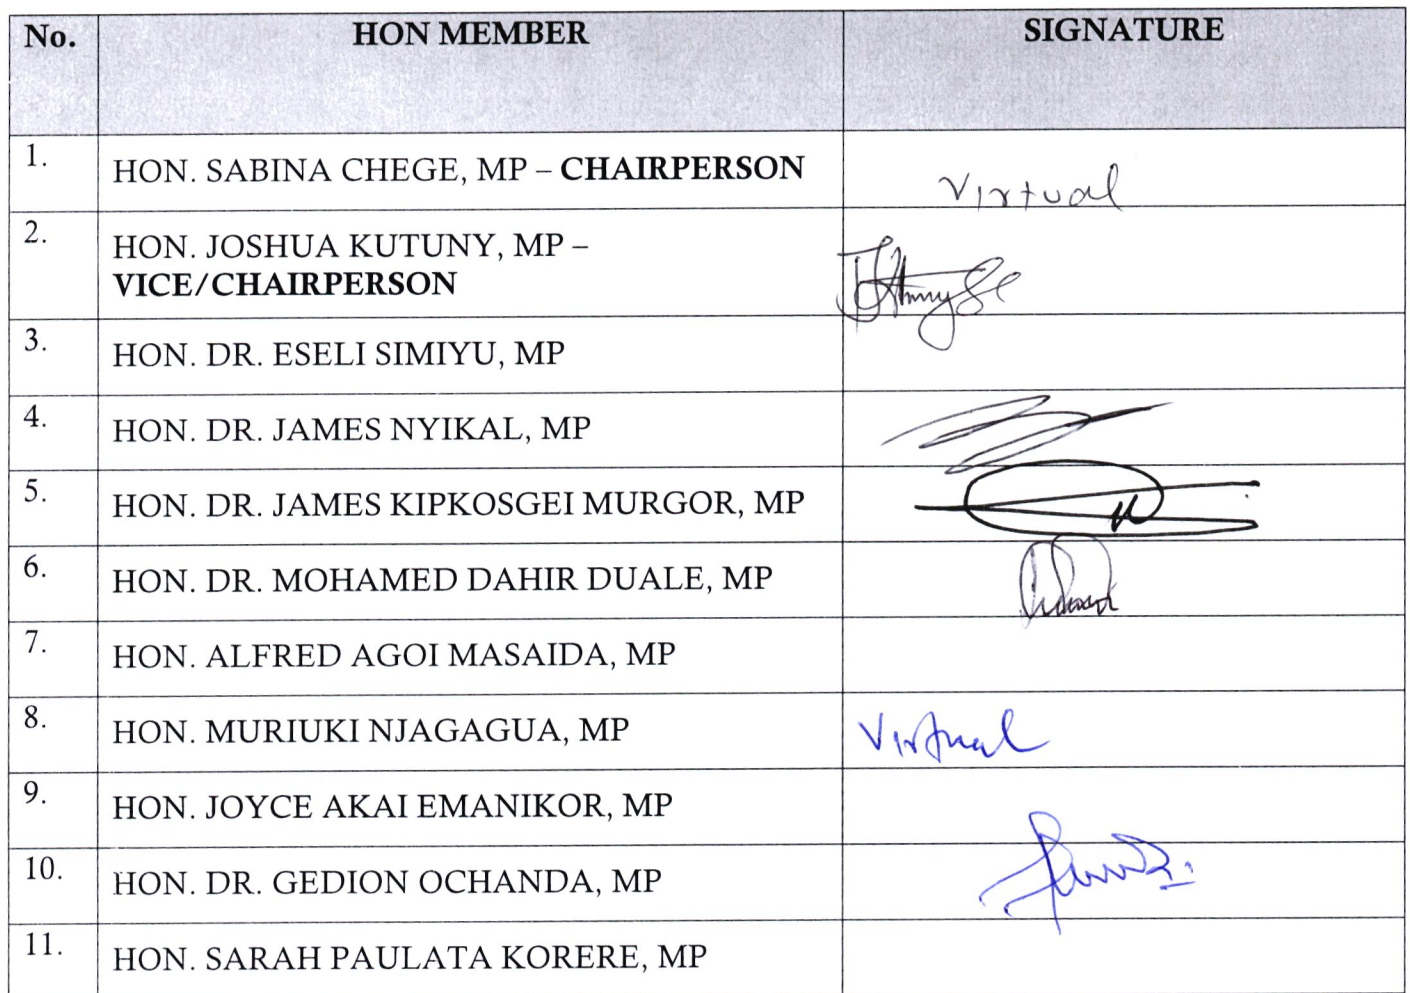 No. HON MEMBER SIGNATURE
1. HON. SABINA CHEGE, MP – CHAIRPERSON Virtual
2. HON. JOSHUA KUTUNY, MP –
VICE/CHAIRPERSON
3. HON. DR. ESELI SIMIYU, MP
4. HON. DR. JAMES NYIKAL, MP
5. HON. DR. JAMES KIPKOSGEI MURGOR, MP
6. HON. DR. MOHAMED DAHIR DUALE, MP
7. HON. ALFRED AGOI MASAIDA, MP
8. HON. MURIUKI NJAGAGUA, MP Virtual
9. HON. JOYCE AKAI EMANIKOR, MP
10. HON. DR. GEDION OCHANDA, MP
11. HON. SARAH PAULATA KORERE, MP